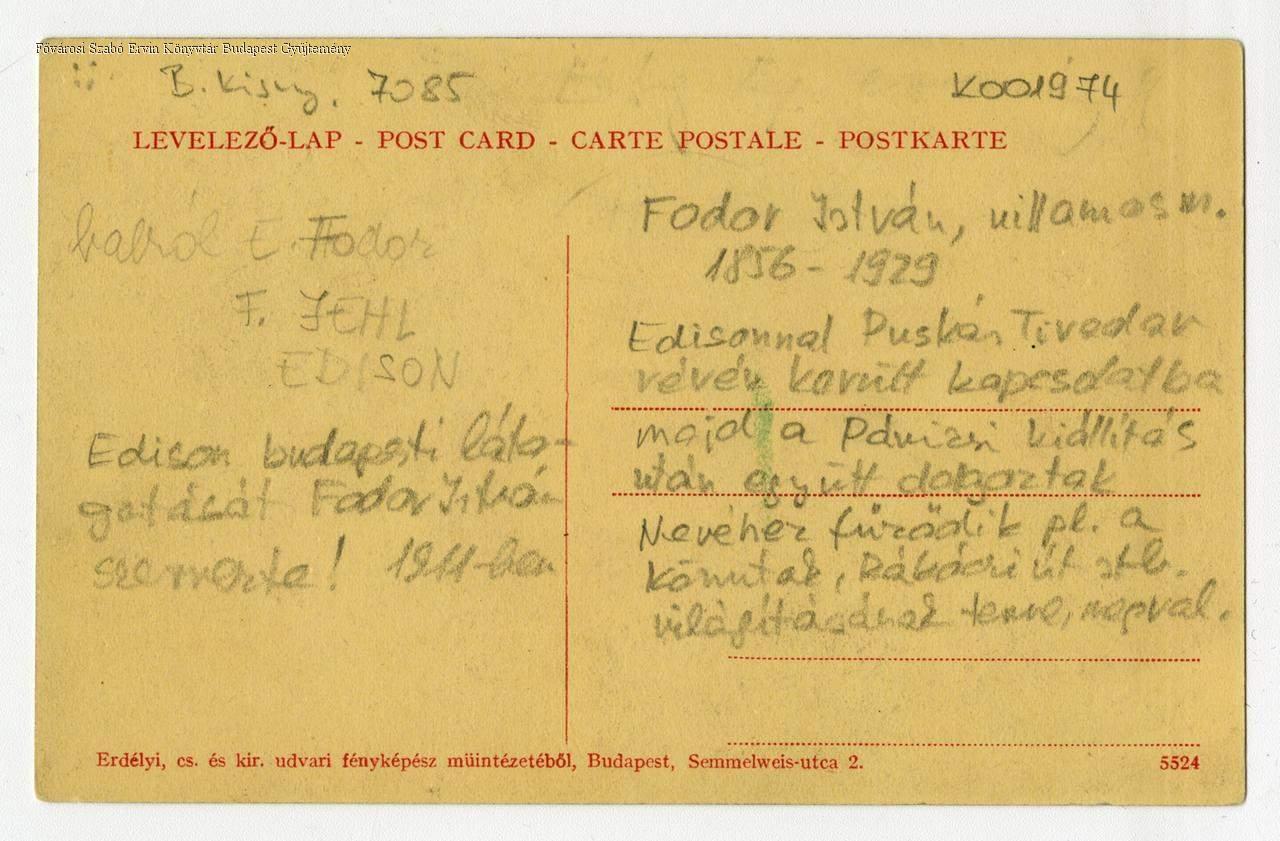 Fővárosi Szabó Ervin Könyvtár Budapest Gyűjtemény
B. Kisny. 7085
K001974
LEVELEZŐ-LAP - POST CARD - CARTE POSTALE - POSTKARTE
balról E. Fodor
F. JEHL
EDISON
Edison budapesti láto-
gatását Fodor István
szervezte! 1911-ben
Fodor István, villamosm.
1856 - 1929
Edisonnal Puskás Tivadar
révén került kapcsolatba
majd a Párizsi kiállítás
után együtt dolgoztak
Nevéhez fűződik pl. a
körutak, Rákóczi út stb.
világításának terve, megval.
Erdélyi, cs. és kir. udvari fényképész müintézetéből, Budapest, Semmelweis-utca 2.
5524